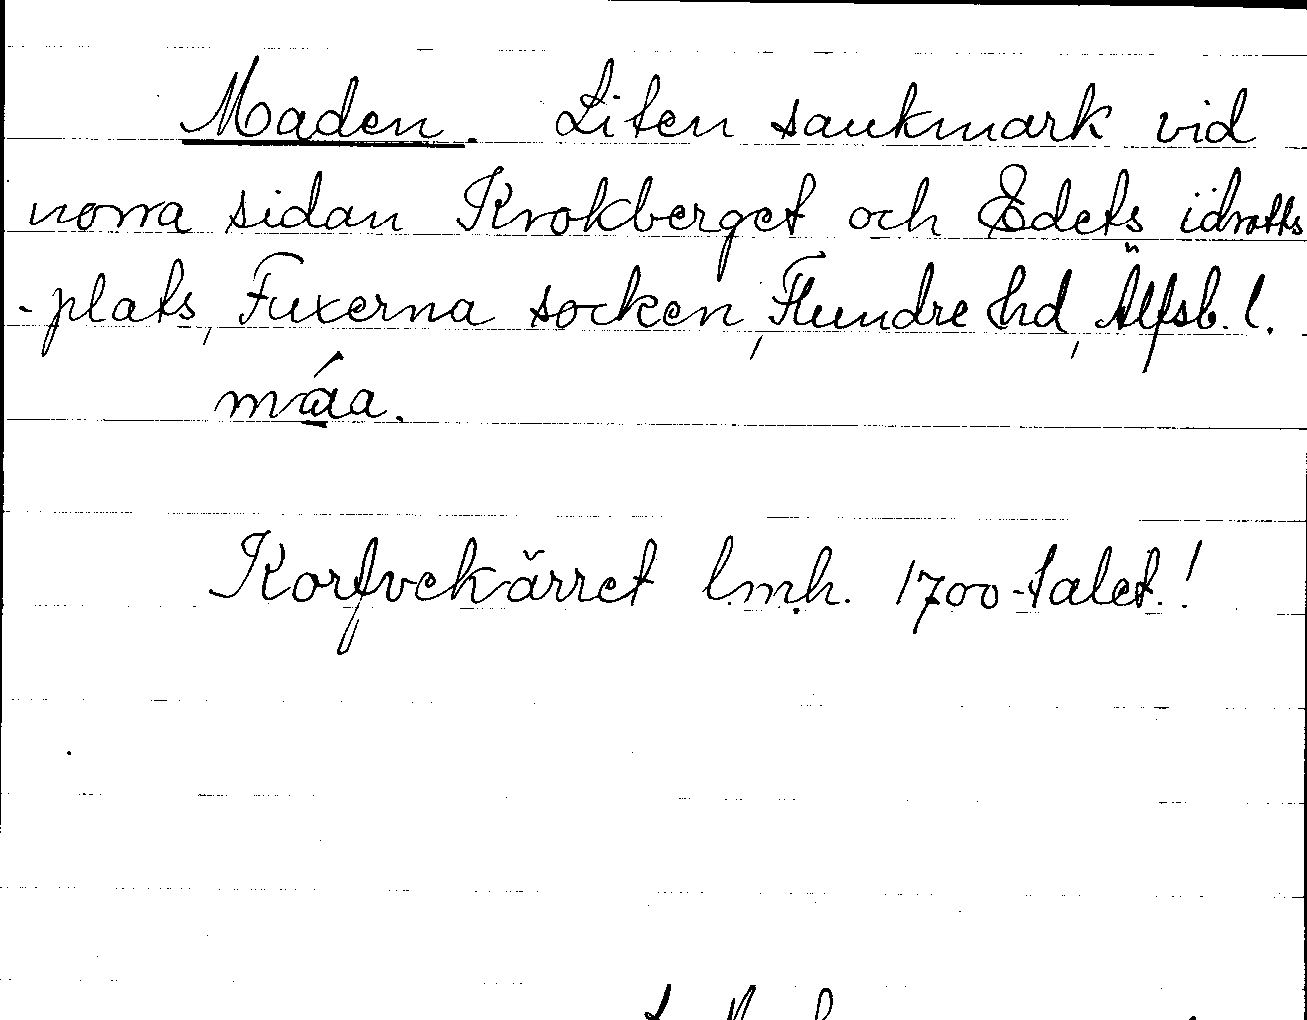 Maden. Liten sankmark vid
norra sidan Krokberget och Edets idrotts
-plats, Fuxerna socken, Flundre hd, Älfsb. l.
máa.
Korfvekärret lmh. 1700-talet.!